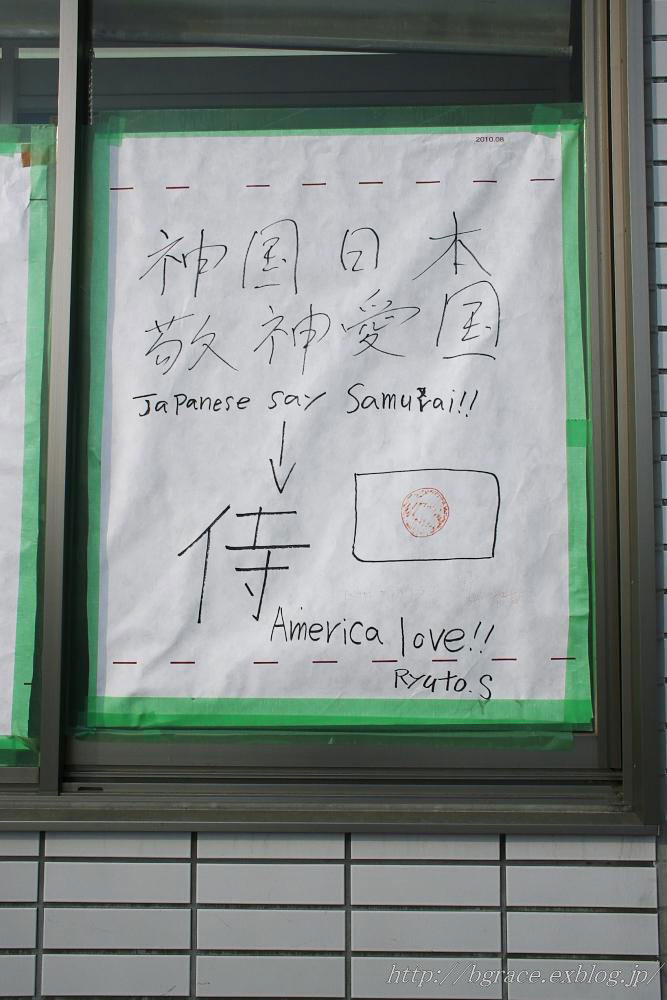 2010.08
神国日本
敬神愛国
Japanese say Samurai!!
侍
America love!!
Ryuto.S
http://bgrace.exblog.jp/